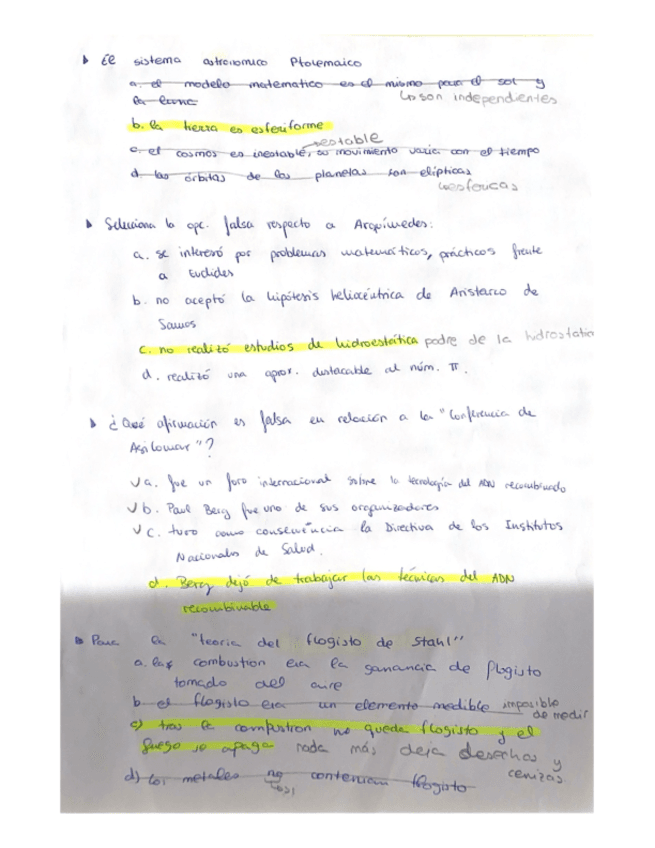 ▸ El sistema astronomico Ptolemaico
a. el modelo matematico es el mismo para el sol y
la luna
↳ son independientes
b. la tierra es esferiforme
→ estable
c. el cosmos es inestable, su movimiento varia con el tiempo
d. las órbitas de los planetas son elípticas
↳ esfericas
▸ Selecciona la opc. falsa respecto a Arquímedes:
a. se interesó por problemas matemáticos, prácticos frente
a Euclides
b. no aceptó la hipótesis heliocéntrica de Aristarco de
Samos
c. no realizó estudios de hidroestática padre de la hidrostatica
d. realizó una aprox. destacable al núm. π.
▸ ¿Qué afirmación es falsa en relación a la "Conferencia de
Asilomar"?
√a. fue un foro internacional sobre la tecnología del ADN recombinado
√b. Paul Berg fue uno de sus organizadores
√c. tuvo como consecuencia la Directiva de los Institutos
Nacionales de Salud.
d. Berg dejó de trabajar las técnicas del ADN
recombinable
▸ Para la "teoria del flogisto de Stahl"
a. la combustion era la ganancia de flogisto
tomado del aire
b el flogisto era un elemento medible imposible
de medir
c) tras la combustion no queda flogisto y el
fuego se apaga nada más deja desechos y
cenizas
d) los metales no contenian flogisto
↳ si